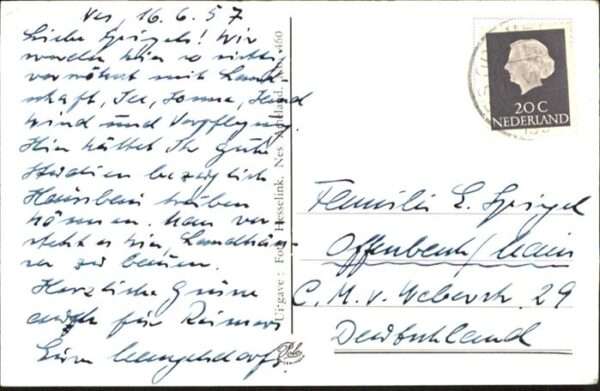 Nes 16.6.57
Liebe Spiegels! Wir
werden hier so richtig
verwöhnt mit Land-
schaft, See, Sonne,
Wind und Verpflegung.
Hier hättet Ihr gute
Studien bezüglich
Hausbau treiben
können. Man ver-
steht es hier, Landhäu-
ser zu bauen.
Herzliche Grüsse
auch für
Eure
Uitgave: Foto Hesselink, Nes Ameland. 460
20 C
NEDERLAND
Familie E. Spiegel
Offenbach/Main
C. M. v. Weberstr. 29
Deutschland